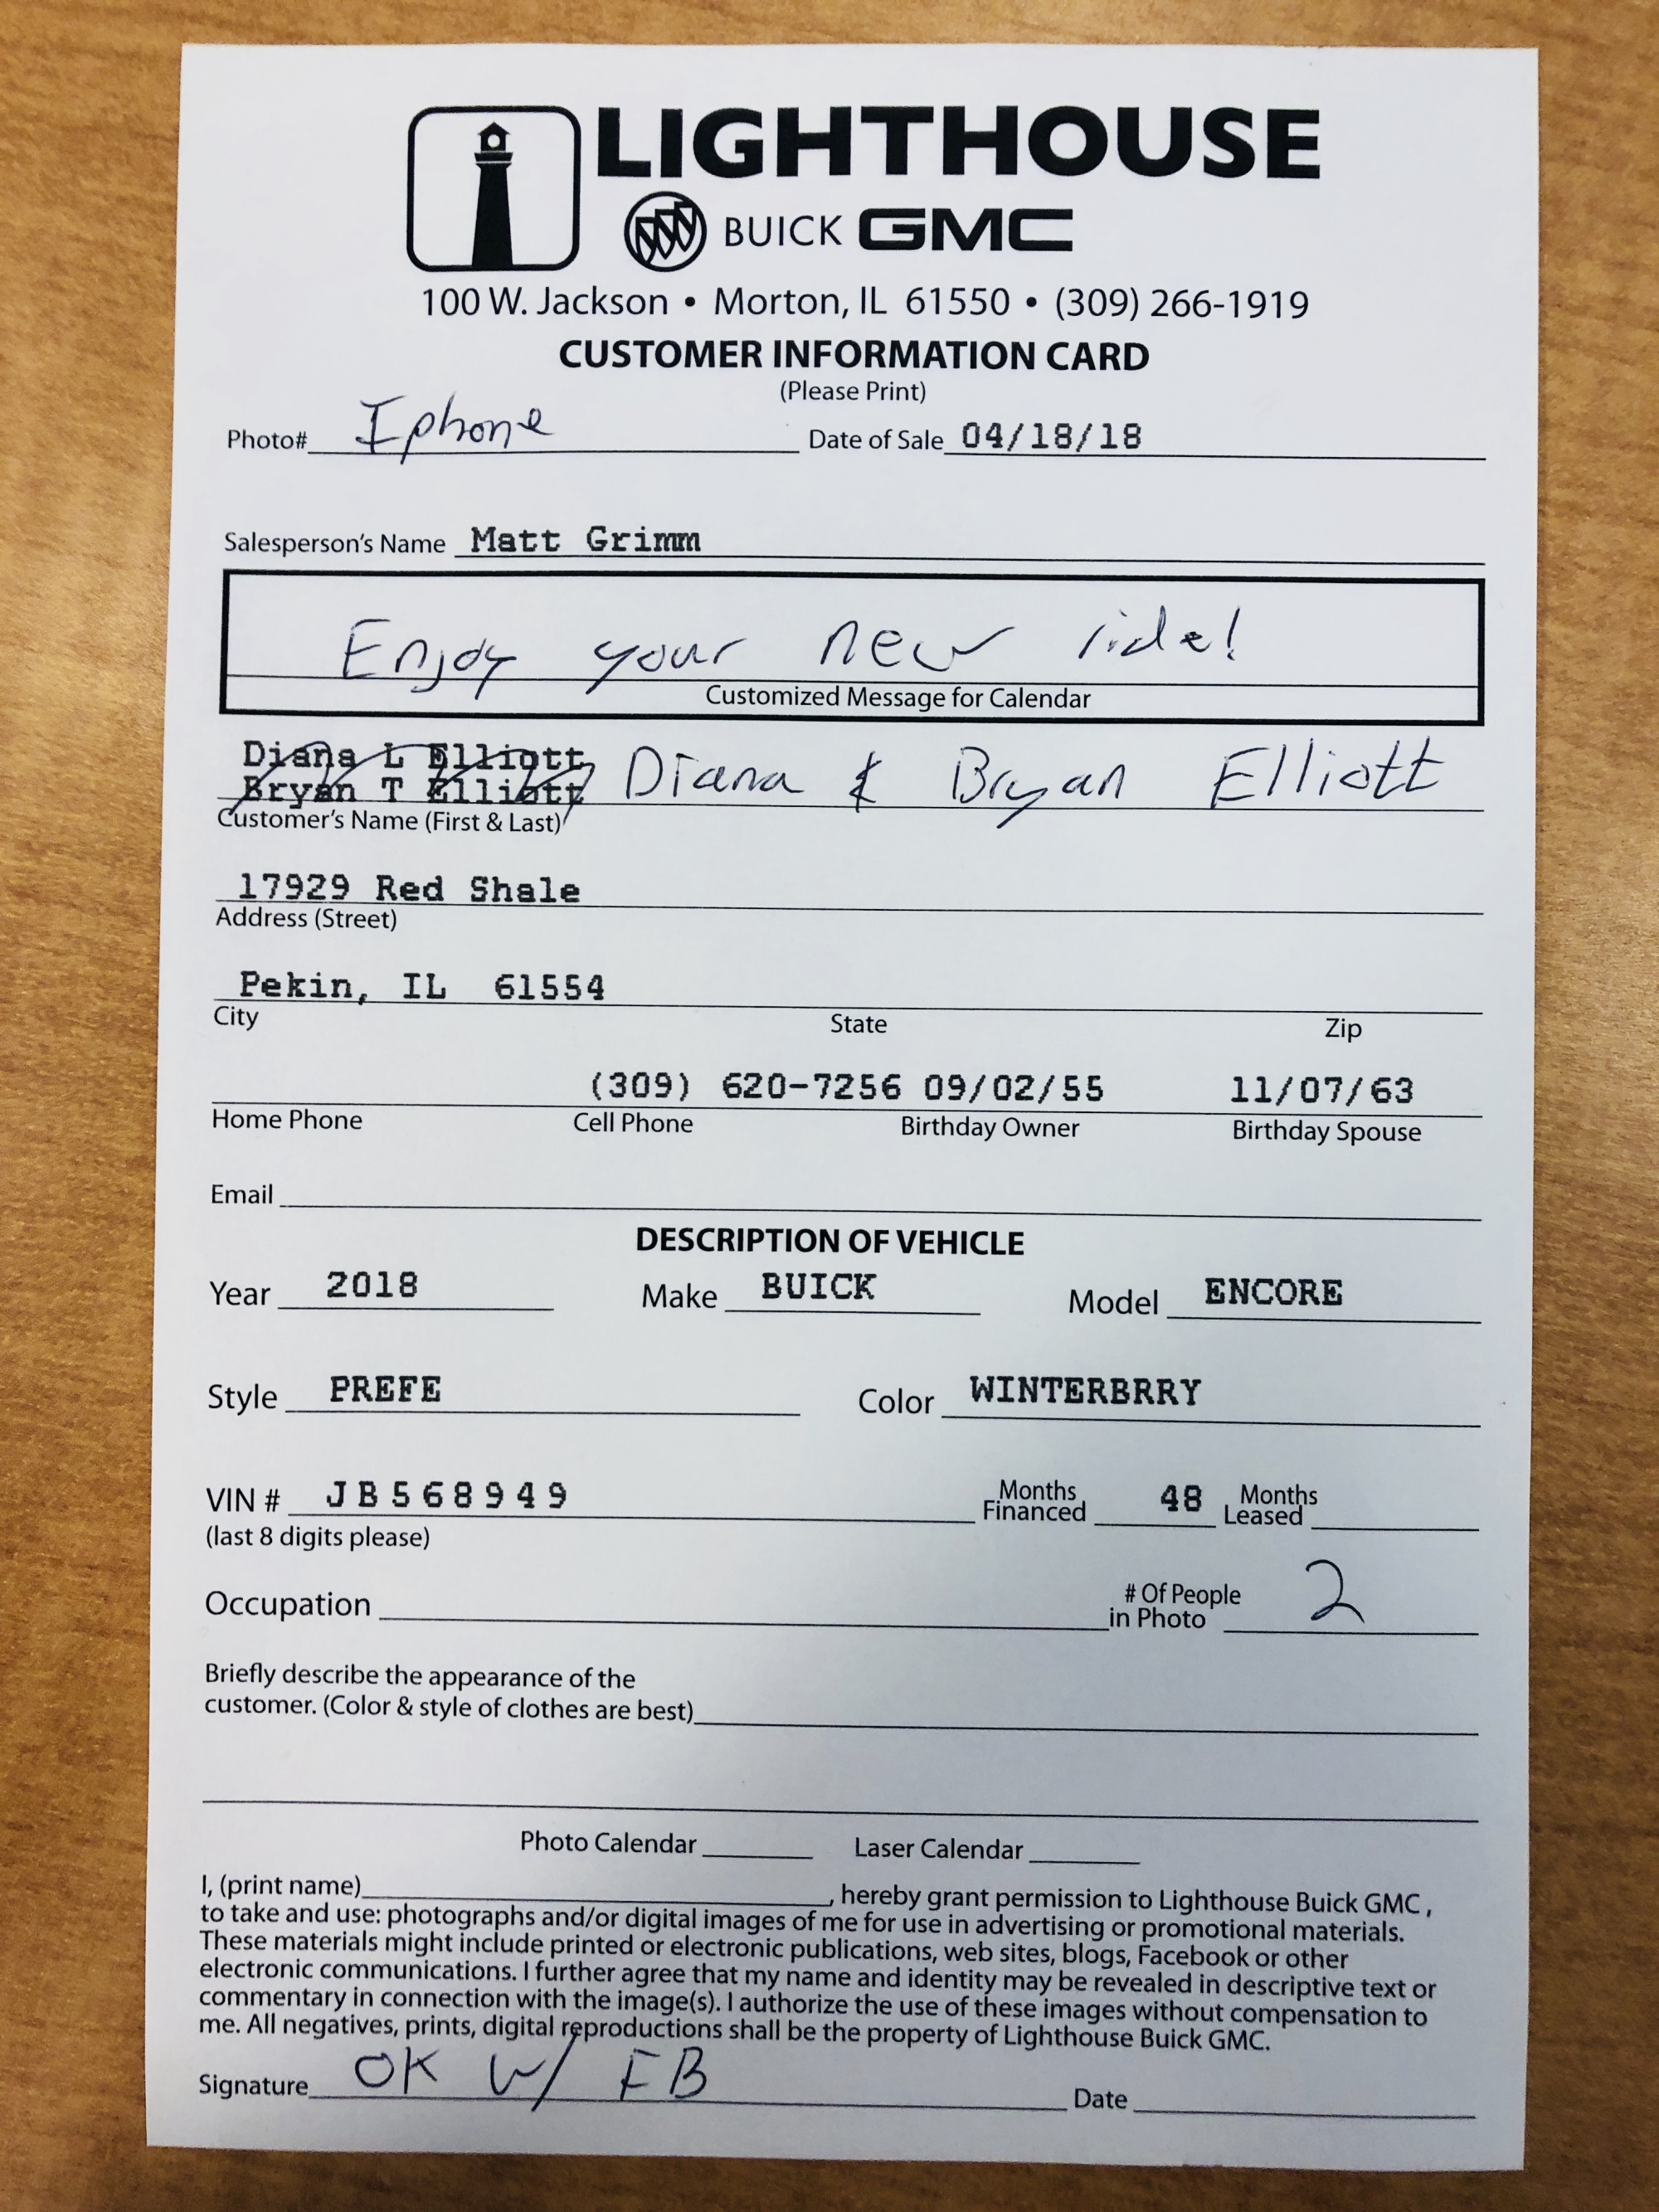 LIGHTHOUSE
BUICK GMC
100 W. Jackson • Morton, IL 61550 • (309) 266-1919
CUSTOMER INFORMATION CARD
(Please Print)
Photo# Iphone Date of Sale 04/18/18
Salesperson's Name Matt Grimm
Enjoy your new ride!
Customized Message for Calendar
Diana L Elliott
Bryan T Elliott Diana & Bryan Elliott
Customer's Name (First & Last)
17929 Red Shale
Address (Street)
Pekin, IL 61554
City State Zip
(309) 620-7256 09/02/55 11/07/63
Home Phone Cell Phone Birthday Owner Birthday Spouse
Email
DESCRIPTION OF VEHICLE
Year 2018 Make BUICK Model ENCORE
Style PREFE Color WINTERBRRY
VIN # JB568949 Months Financed 48 Months Leased
(last 8 digits please)
Occupation # Of People in Photo 2
Briefly describe the appearance of the
customer. (Color & style of clothes are best)
Photo Calendar Laser Calendar
I, (print name), hereby grant permission to Lighthouse Buick GMC,
to take and use: photographs and/or digital images of me for use in advertising or promotional materials.
These materials might include printed or electronic publications, web sites, blogs, Facebook or other
electronic communications. I further agree that my name and identity may be revealed in descriptive text or
commentary in connection with the image(s). I authorize the use of these images without compensation to
me. All negatives, prints, digital reproductions shall be the property of Lighthouse Buick GMC.
Signature OK W/ FB Date